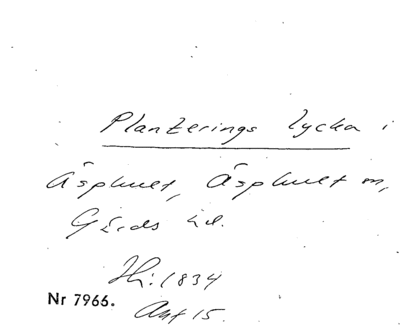 Planterings lycka i
Äsphult, Äsphult sn,
Gärds hd.
Hi: 1834
Nr 7966.
Akt 15.